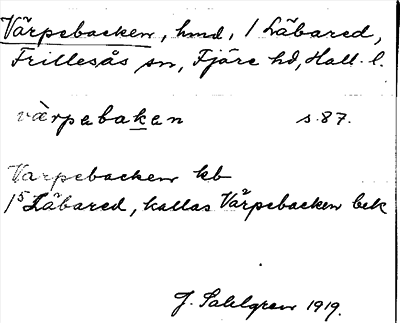 Värpebacken, hmd, 1 Läbared,
Frillesås sn, Fjäre hd, Hall. l.
vàrpabakan s. 87.
Varpebacken kb
1⁵ Läbared, kallas Värpebacken bek
J. Sahlgren 1919.